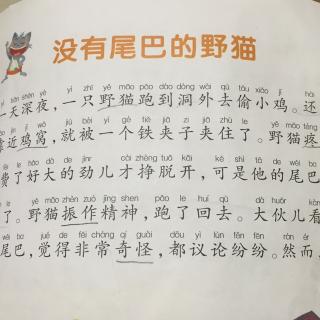 没有尾巴的野猫
tiān shēn yè yì zhī yě māo pǎo dào dòng wài qù tōu xiǎo jī hái
一天深夜,一只野猫跑到洞外去偷小鸡。还
jìn jī wō jiù bèi yí gè tiě jiā zi jiā zhù le yě māo téng
靠近鸡窝,就被一个铁夹子夹住了。野猫疼
le hǎo dà de jìnr cái zhèng tuō kāi kě shì tā de wěi ba
费了好大的劲儿才挣脱开,可是他的尾巴
le yě māo zhèn zuò jīng shén pǎo le huí qù dà huǒr kàn
了。野猫振作精神,跑了回去。大伙儿看
wěi ba jué de fēi cháng qí guài dōu yì lùn fēn fēn rán ér
尾巴,觉得非常奇怪,都议论纷纷。然而,